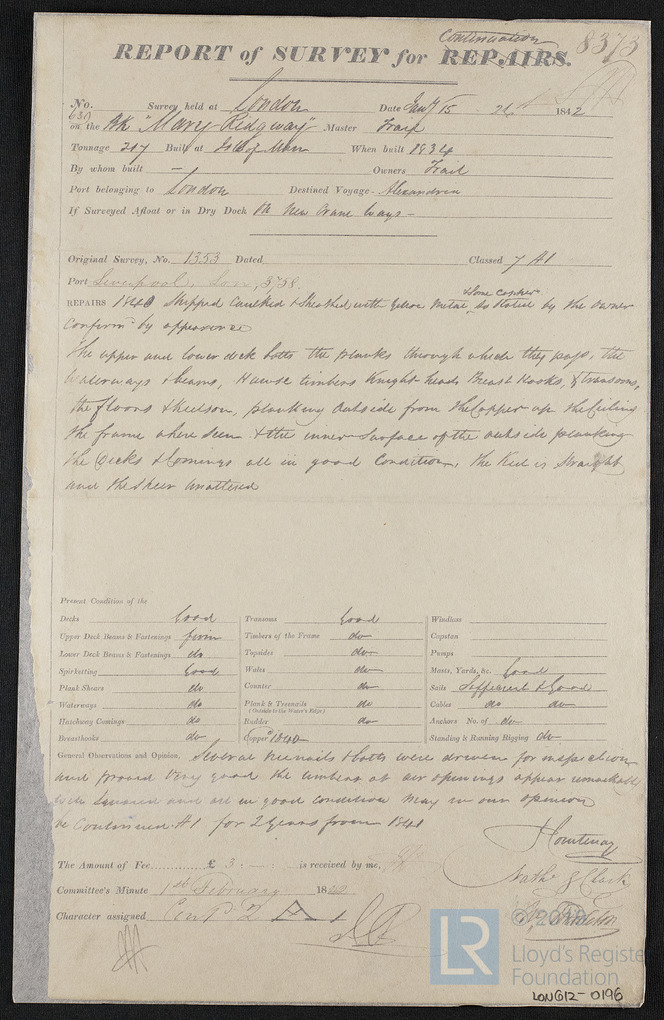 Continuation 8373
REPORT of SURVEY for REPAIRS.
No. 630 Survey held at London Date Jany 15 1842
on the Bk "Mary Ridgway" Master Trail
Tonnage 217 Built at Isle of Man When built 1834
By whom built — Owners Trail
Port belonging to London Destined Voyage Alexandria
If Surveyed Afloat or in Dry Dock On New Crane Ways
Original Survey, No. 1353 Dated Classed 7 A1
Port Liverpool, Lon, 3758.
& some copper
REPAIRS 1840 Stripped Caulked & Sheathed with Yellow Metal so stated by the owner
Confirmd by appearance
The upper and lower deck bolts the planks through which they pass, the
Waterways & beams, Hawse timbers Knight heads Breast Hooks, & transoms,
the floors & keelson, planking outside from the Copper up the Ceiling
the frame where seen & the inner surface of the outside planking
the Decks & Comings all in good condition, the Keel is straight
and the sheer unaltered
Present Condition of the
Decks Good Transoms Good Windlass
Upper Deck Beams & Fastenings firm Timbers of the Frame do Capstan
Lower Deck Beams & Fastenings do Topsides do Pumps
Spirketting Good Wales do Masts, Yards, &c. Good
Plank Shears do Counter do Sails Sufficient & Good
Waterways do Plank & Treenails (Outside to the Water's Edge) do Cables do do
Hatchway Comings do Rudder do Anchors No. of do
Breasthooks do Copper 1840 Standing & Running Rigging do
General Observations and Opinion, Several treenails & bolts were driven for inspection
and proved very good the timbers at air openings appear remarkably
and all in good condition may in our opinion
be Continued A1 for 2 Years from 1841
The Amount of Fee........... £ 3 — : — is received by me,
Courtenay
Nathl G Clark
Committee's Minute 1st February 1842
Character assigned Contd 2 A 1
© 2019
LR Lloyd's Register
Foundation
LON612-0196